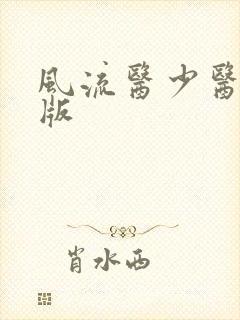 風流醫少醫
版
肖水西